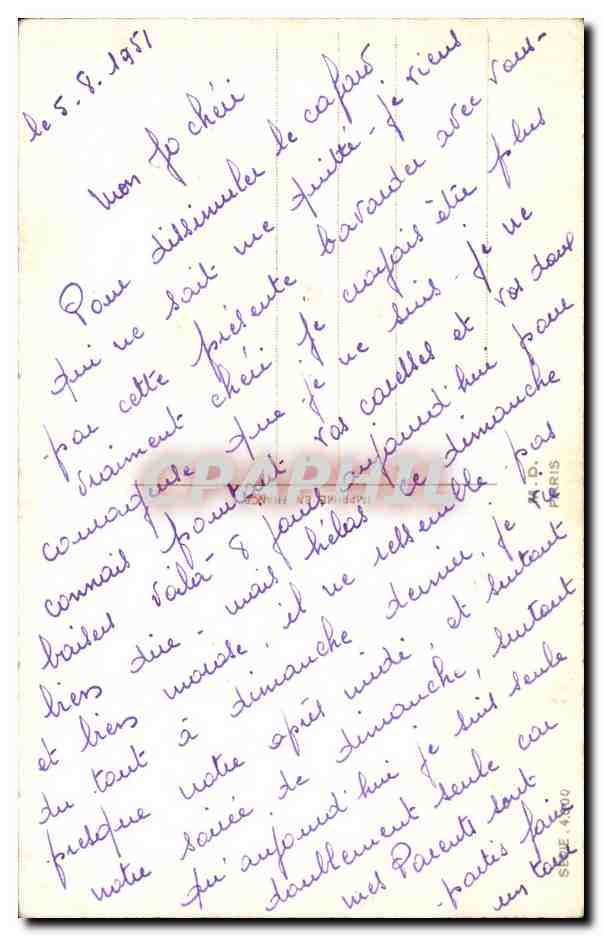 le 5-8-1951
Mon Jo chéri
Pour dissimuler le cafard
qui ne sait me quitté - je viens
par cette présente bavarder avec vous-
vraiment chéri je croyais être plus
courageuse que je ne suis - je ne
connais pourtant vos caresses et vos doux
baisers voilà 8 jours aujourd'hui pour
bien dire - mais hélas ce dimanche
et bien morose, il ne ressemble pas
du tout à dimanche dernier, je
presque notre après midi, et surtout
notre soirée de dimanche, surtout
qu'aujourd'hui je suis seule
doublement seule car
mes Parents sont
partis faire
un tour
CPARPHIL
IMPRIMÉ EN FRANCE
M.D.
PARIS
SÉRIE. 4.900